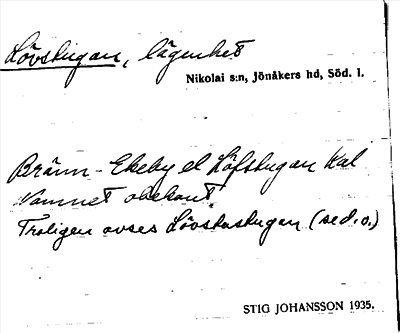 Lövstugan, lägenhet
Nikolai s:n, Jönåkers hd, Söd. l.
Bränn-Ekeby el Löfstugan Kal
Namnet obekant.
Troligen avses Lövstastugan (se d.o.)
STIG JOHANSSON 1935.